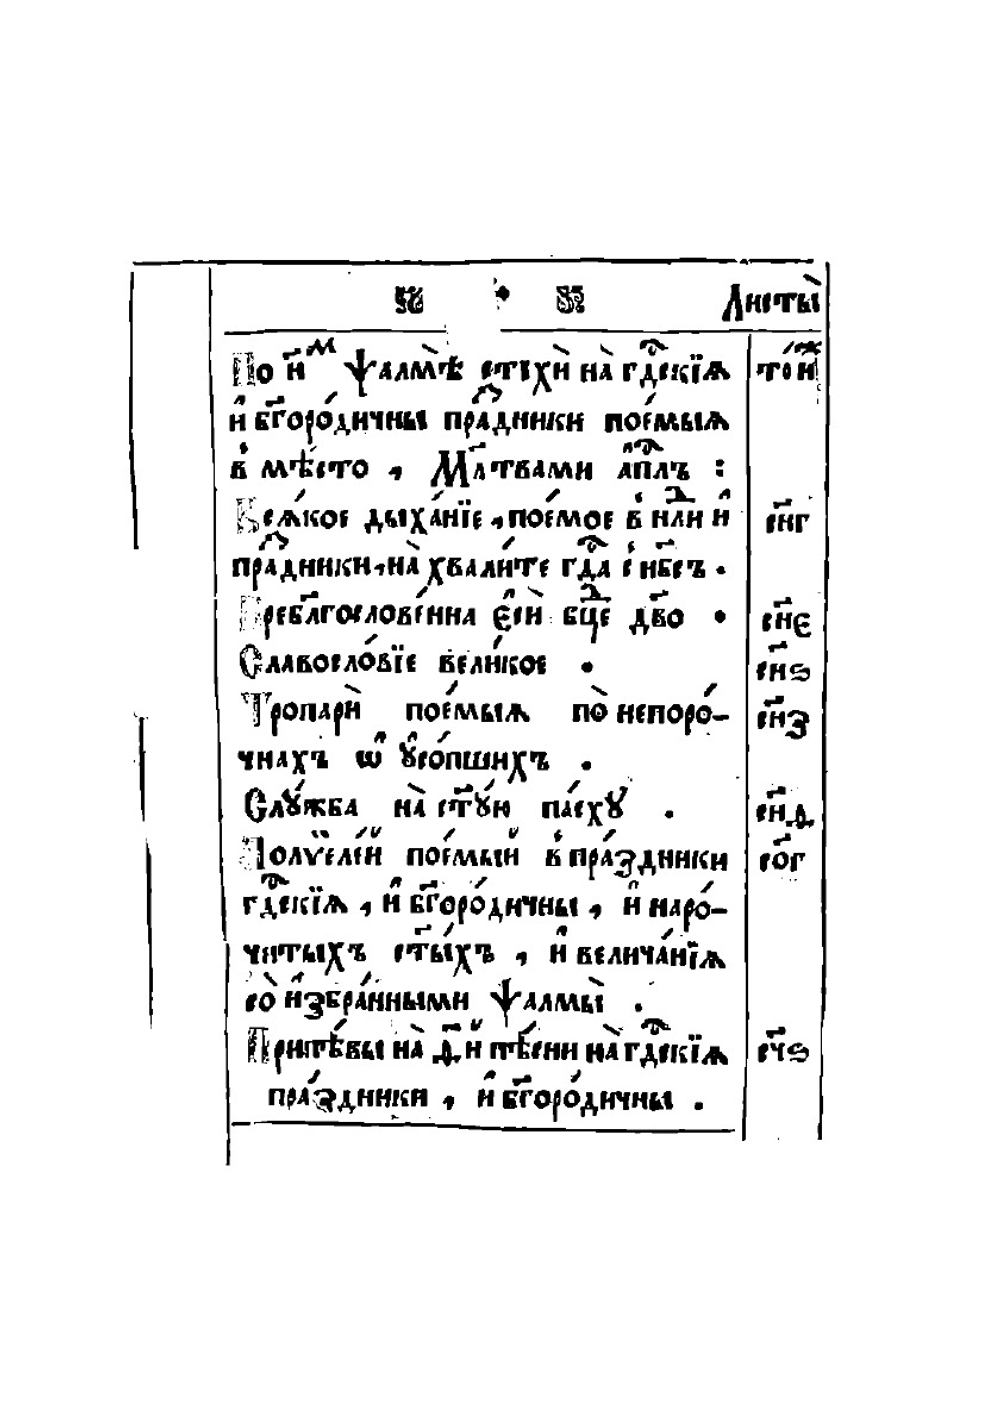 Листы̀
По н҃ᲂм ѱалмѣ̀ стихѝ на̀ гдⷭ҇скїѧ то́йж
и҆ бг҃оро́дичны пра́здники пое́мыѧ
в҆ мѣ́сто , Мл҃твами а҆пⷭ҇лъ :
Всѧ́кое дыха́нїе , пое́мое в҆ нⷣли и҆ сн҃г
пра́здники , на̀ хвали́те гдⷭ҇а с҆ нб҃съ .
Преблг҃ослове́нна є҆сѝ бцⷣе дв҃о . сн҃є
Славосло́вїе вели́кое . сн҃ѕ
Тропарѝ пое́мыѧ по̀ непоро́- сн҃з
чнахъ ѡ҆ ᲂу҆со́пшихъ .
Слу́жба на̀ ст҃у́ю па́сху . сн҃д
Полѵеле́й пое́мый в҆ пра́здники со҃г
гдⷭ҇скїѧ , и҆ бг҃оро́дичны , и҆ наро́-
читыхъ ст҃ы́хъ , и҆ велича́нїѧ
со̀ и҆збра́нными ѱалмы̀ .
Припѣ́вы на̀ д҃й пѣ́сни на̀ гдⷭ҇скїѧ сч҃ѕ
пра́здники , и҆ бг҃оро́дичны .